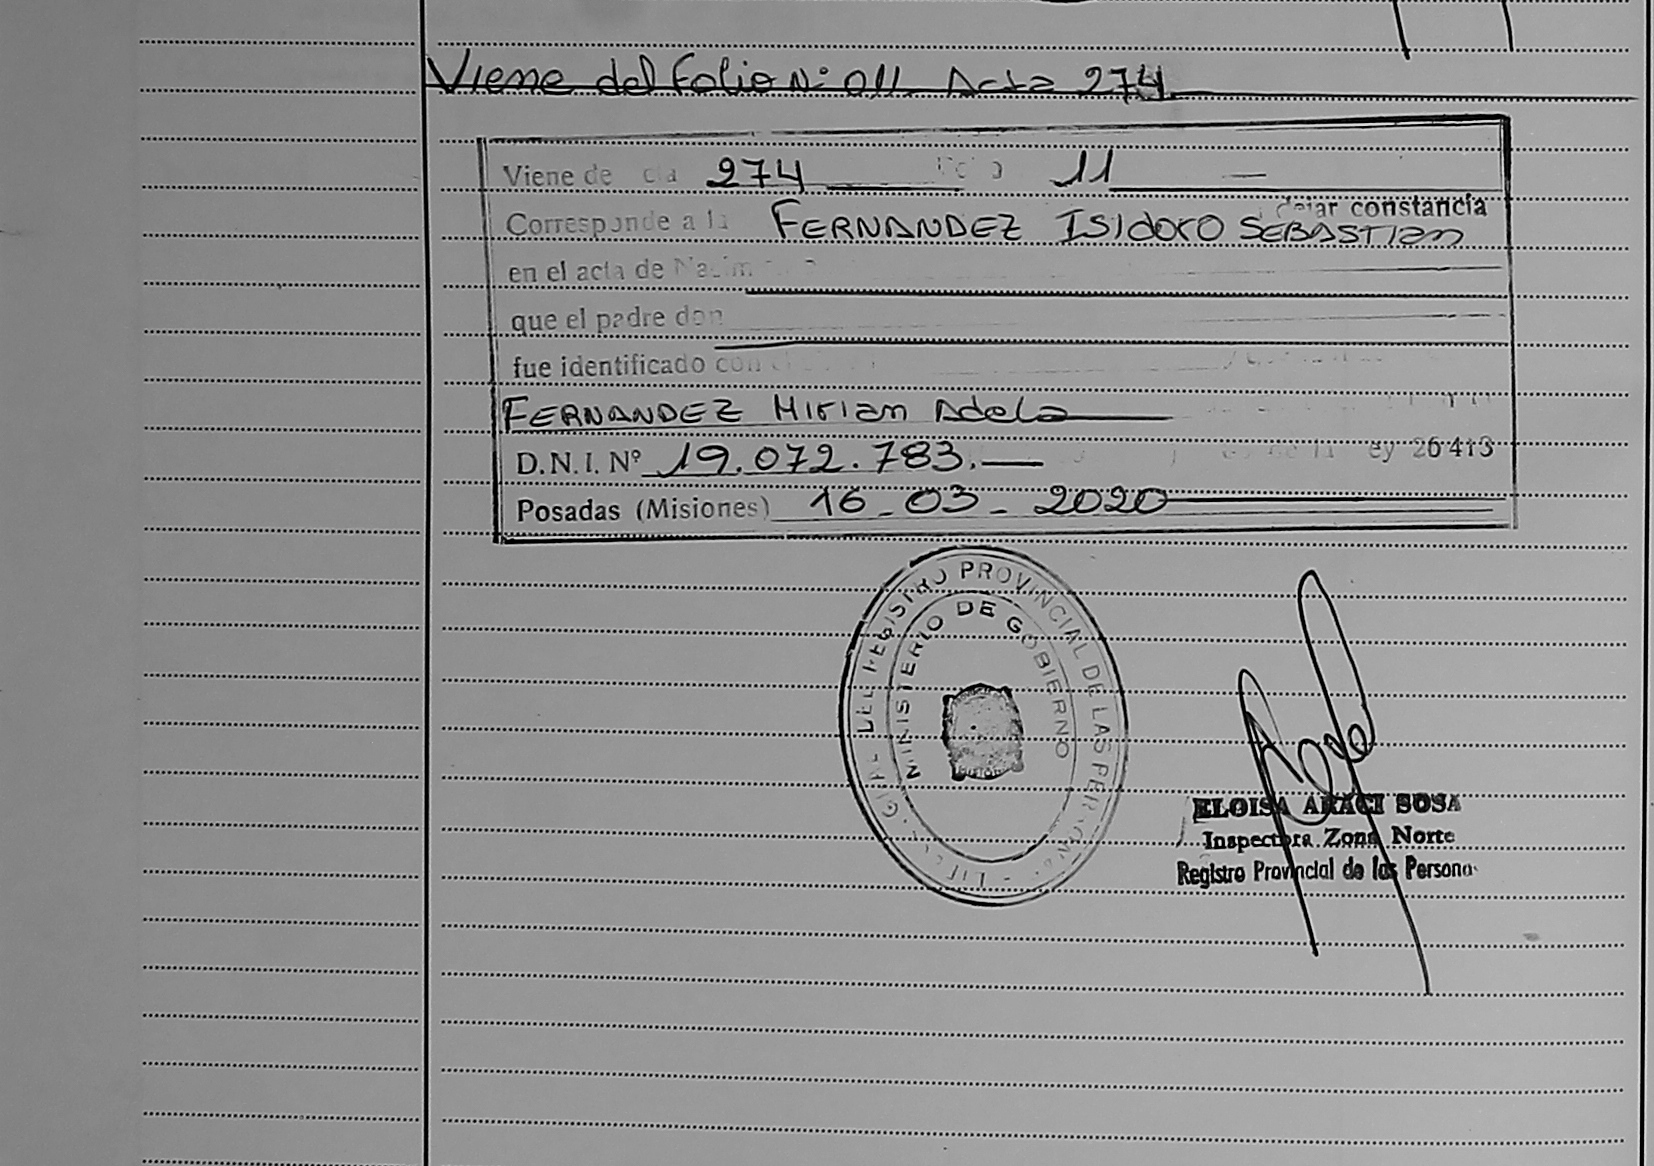 Viene del Folio N° 011 Acta 274
Viene de 274 11
Corresponde a la FERNANDEZ ISIDORO SEBASTIAN dejar constancia
en el acta de
que el padre don
fue identificado con
FERNANDEZ Mirian Adela
D.N.I. Nº 19.072.783. ey 26413
Posadas (Misiones) 16-03-2020
DEL REGISTRO PROVINCIAL DE LAS
MINISTERIO DE GOBIERNO
ELOISA ARACI SOSA
Inspectora Zona Norte
Registro Provincial de las Persona